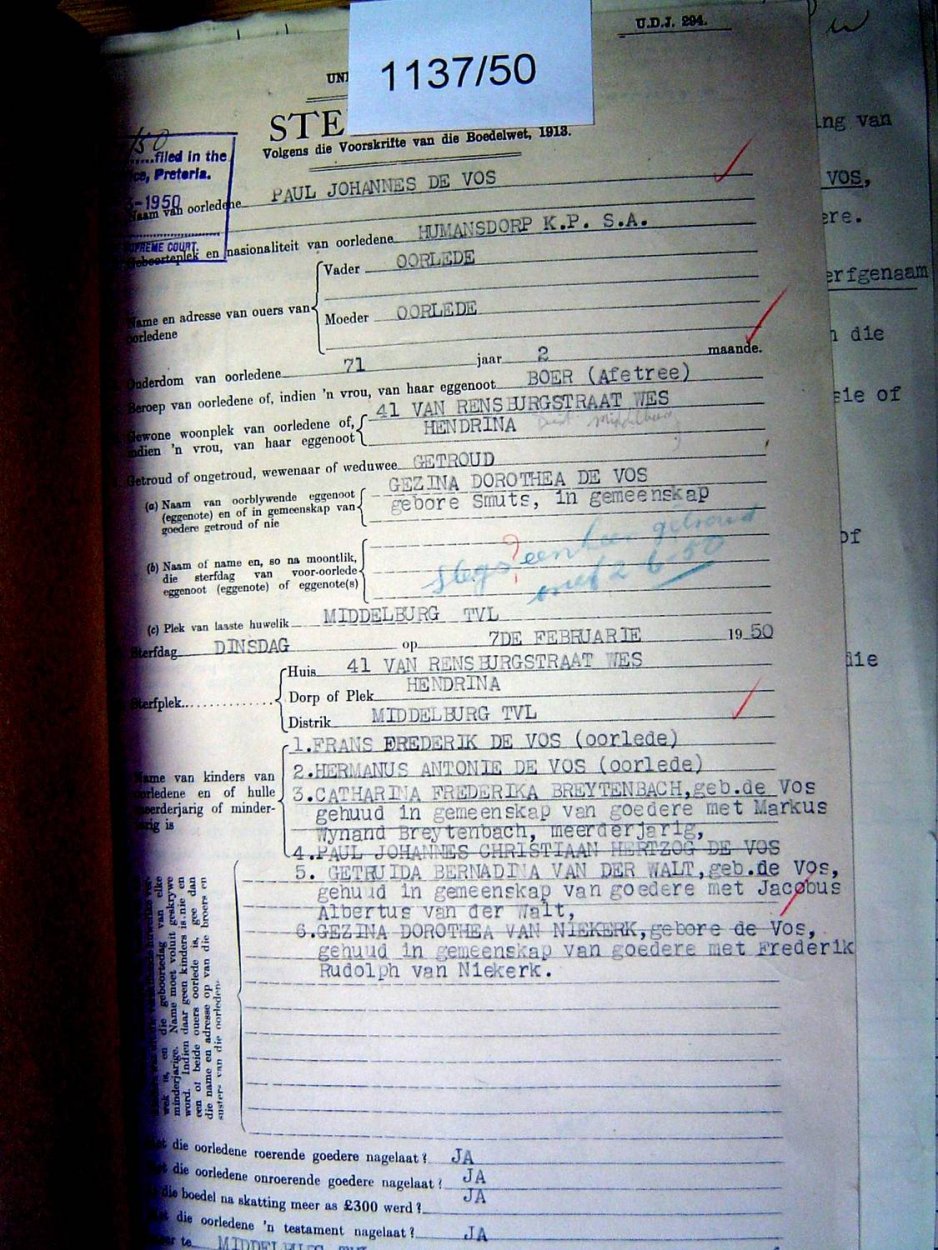 U.D.J. 294.
1137/50
UNI
STE
Volgens die Voorskrifte van die Boedelwet, 1913.
/50
filed in the
ce, Pretoria.
-1950
SUPREME COURT.
Naam van oorledene PAUL JOHANNES DE VOS
Geboorteplek en nasionaliteit van oorledene HUMANSDORP K.P. S.A.
Name en adresse van ouers van oorledene
Vader OORLEDE
Moeder OORLEDE
Ouderdom van oorledene 71 jaar 2 maande.
Beroep van oorledene of, indien 'n vrou, van haar eggenoot BOER (Afetree)
Gewone woonplek van oorledene of, 41 VAN RENSBURGSTRAAT WES
indien 'n vrou, van haar eggenoot HENDRINA
Getroud of ongetroud, wewenaar of weduwee GETROUD
(a) Naam van oorblywende eggenoot GEZINA DOROTHEA DE VOS
(eggenote) en of in gemeenskap van gebore Smuts, in gemeenskap
goedere getroud of nie
(b) Naam of name en, so na moontlik,
die sterfdag van voor-oorlede
eggenoot (eggenote) of eggenote(s)
? slegs eenkeer getroud
2 6.50
(c) Plek van laaste huwelik MIDDELBURG TVL
Sterfdag DINSDAG op 7DE FEBRUARIE 1950
Sterfplek
Huis 41 VAN RENSBURGSTRAAT WES
Dorp of Plek HENDRINA
Distrik MIDDELBURG TVL
Name van kinders van
oorledene en of hulle
meerderjarig of minder-
jarig is
1.FRANS FREDERIK DE VOS (oorlede)
2.HERMANUS ANTONIE DE VOS (oorlede)
3.CATHARINA FREDERIKA BREYTENBACH,geb.de Vos
gehuud in gemeenskap van goedere met Markus
Wynand Breytenbach, meerderjarig,
4.PAUL JOHANNES CHRISTIAAN HERTZOG DE VOS
5. GETRUIDA BERNADINA VAN DER WALT,geb.de Vos,
gehuud in gemeenskap van goedere met Jacobus
Albertus van der Walt,
6.GEZINA DOROTHEA VAN NIEKERK,gebore de Vos,
gehuud in gemeenskap van goedere met Frederik
Rudolph van Niekerk.
wek is, en die geboortedag van elke
minderjarige. Name moet voluit geskrywe
word. Indien daar geen kinders is nie en
een of beide ouers oorlede is, gee dan
die name en adresse op van die broers en
susters van die oorledene
die oorledene roerende goedere nagelaat? JA
die oorledene onroerende goedere nagelaat? JA
die boedel na skatting meer as £300 werd? JA
die oorledene 'n testament nagelaat? JA
te MIDDELBURG TVL
ng van
VOS,
ere.
erfgenaam
die
sie of
of
die